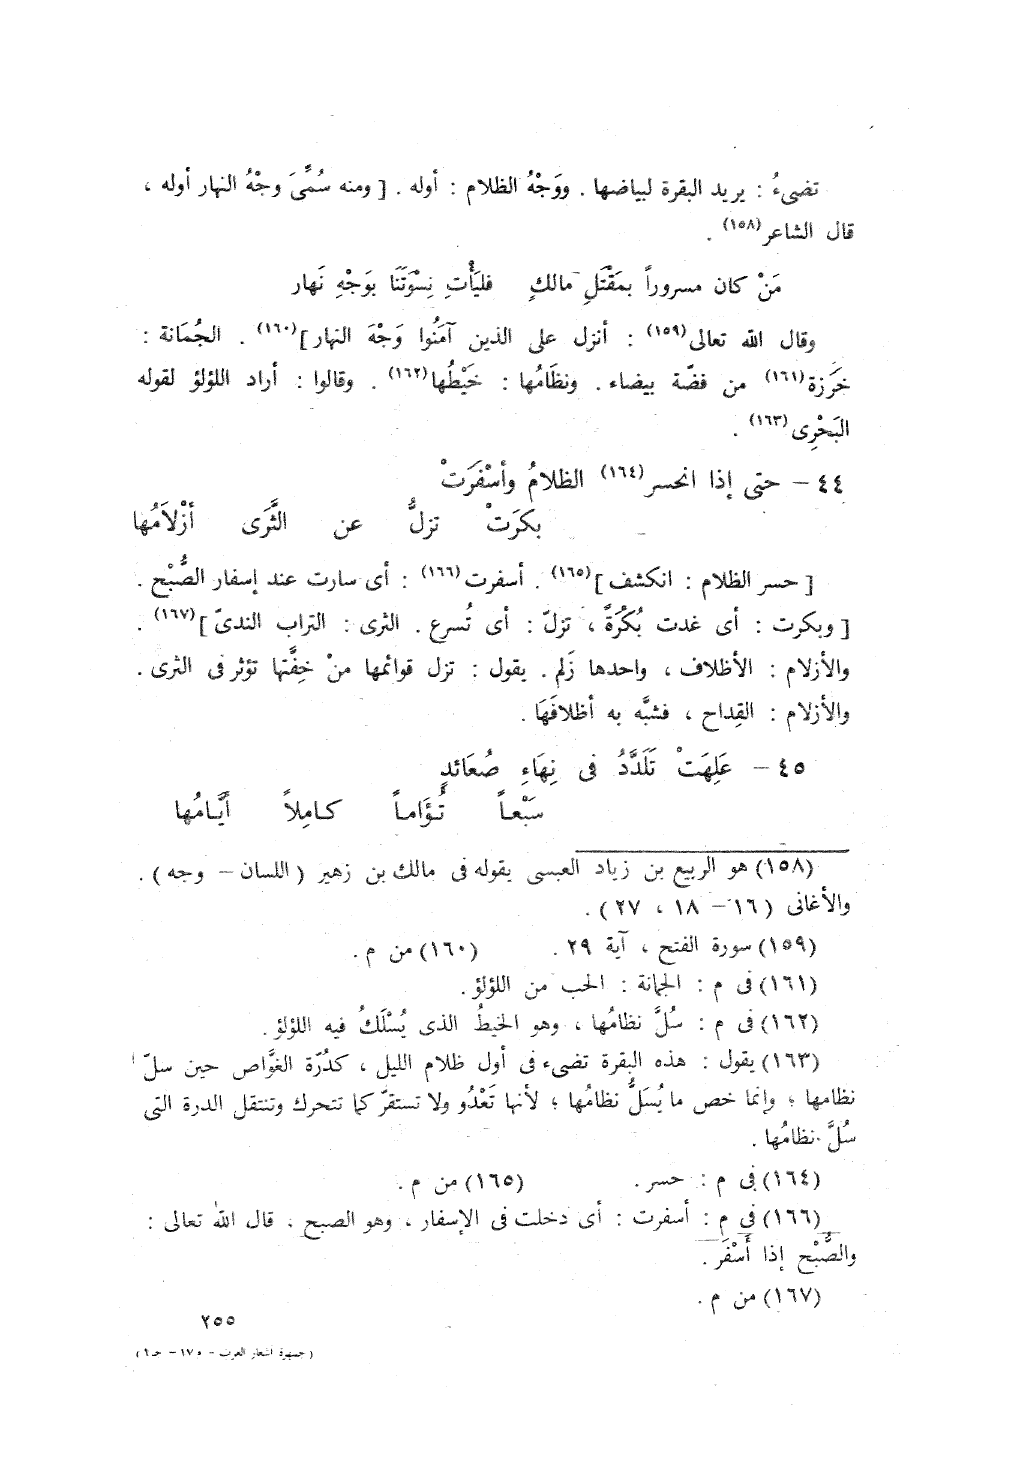 تضىءُ : يريد البقرة لبياضها . ووَجْهُ الظلام : أوله . [ ومنه سُمِّىَ وجْهُ النهار أوله ،
قال الشاعر(١٥٨) .
مَنْ كان مسروراً بمَقْتَلِ مالكٍ فليَأْتِ نِسْوَتَنَا بوَجْهِ نَهار
وقال الله تعالى(١٥٩) : أنزل على الذين آمَنُوا وَجْهَ النهار](١٦٠) . الجُمَانة :
خَرَزة(١٦١) من فضّة بيضاء . ونظَامُها : خَيْطُها(١٦٢) . وقالوا : أراد اللؤلؤ لقوله
البَحْرِى(١٦٣) .
٤٤ – حتى إذا انحسر(١٦٤) الظلامُ وأسْفَرَتْ
بكرَتْ تزلُّ عن الثَّرَى أزْلاَمُها
[ حسر الظلام : انكشف ](١٦٥) . أسفرت(١٦٦) : أى سارت عند إسفار الصُّبْح .
[ وبكرت : أى غدت بُكْرَةً ، تزلّ : أى تُسرع . الثرى : التراب الندىّ ](١٦٧) .
والأزلام : الأظلاف ، واحدها زَلم . يقول : تزل قوائمها منْ خِفَّتها تؤثر فى الثرى .
والأزلام : القِداح ، فشبَّه به أظلافَهَا .
٤٥ – عَلِهَتْ تَلَدَّدُ فى نِهَاءِ صُعَائدٍ
سَبْعاً تُؤَاماً كامِلاً أيَّامُها
(١٥٨) هو الربيع بن زياد العبسى يقوله فى مالك بن زهير ( اللسان – وجه ) .
والأغانى ( ١٦ – ١٨ ، ٢٧ ) .
(١٥٩) سورة الفتح ، آية ٢٩ . (١٦٠) من م .
(١٦١) فى م : الجمانة : الحب من اللؤلؤ .
(١٦٢) فى م : سُلَّ نظامُها ، وهو الخيطُ الذى يُسْلَكُ فيه اللؤلؤ .
(١٦٣) يقول : هذه البقرة تضىء فى أول ظلام الليل ، كدُرّة الغوَّاص حين سلّ
نظامها ؛ وإنما خص ما يُسَلُّ نظامُها ؛ لأنها تَعْدُو ولا تستقرّ كما تتحرك وتنتقل الدرة التى
سُلَّ نظامُها .
(١٦٤) فى م : حسر . (١٦٥) من م .
(١٦٦) فى م : أسفرت : أى دخلت فى الإسفار ، وهو الصبح ، قال الله تعالى :
والصُّبْح إذا أَسْفَر .
(١٦٧) من م .
٢٥٥
( جمهرة أشعار العرب – م ١٧ – حـ ١ )